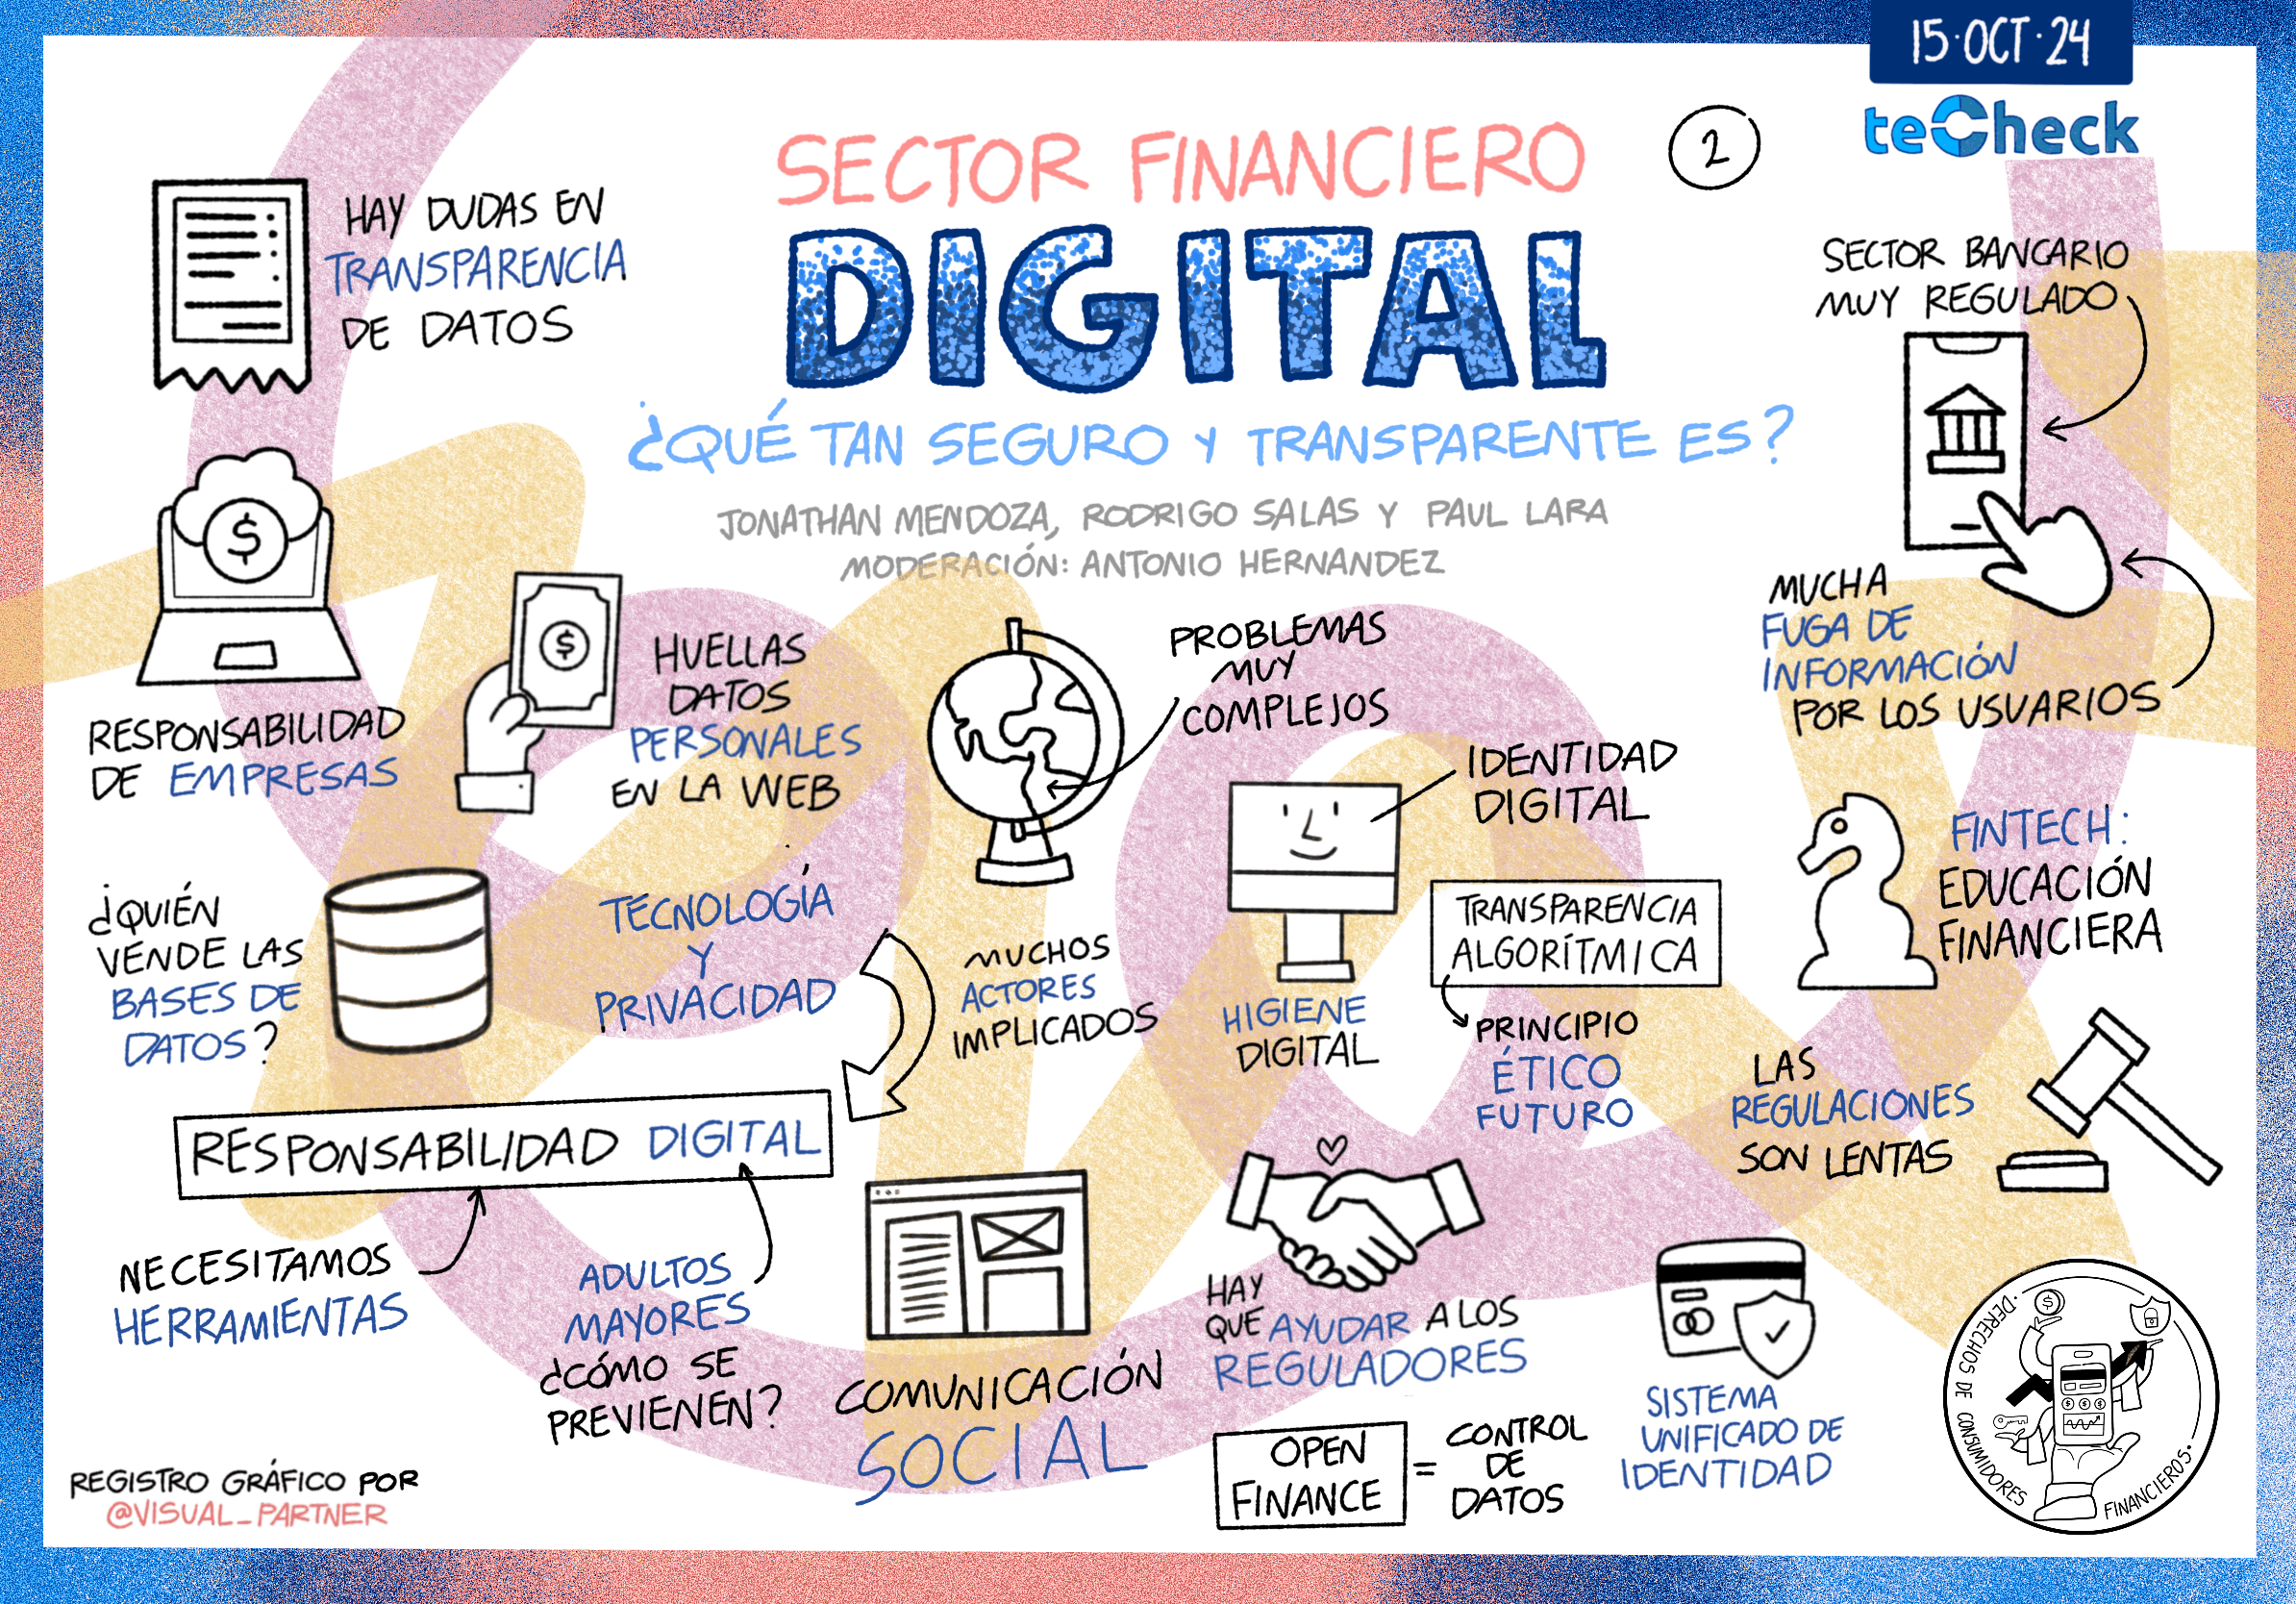 15·OCT·24
teCheck
SECTOR FINANCIERO
2
DIGITAL
¿QUÉ TAN SEGURO Y TRANSPARENTE ES?
JONATHAN MENDOZA, RODRIGO SALAS Y PAUL LARA
MODERACIÓN: ANTONIO HERNANDEZ
HAY DUDAS EN
TRANSPARENCIA
DE DATOS
SECTOR BANCARIO
MUY REGULADO
$
RESPONSABILIDAD
DE EMPRESAS
$
HUELLAS
DATOS
PERSONALES
EN LA WEB
PROBLEMAS
MUY
COMPLEJOS
MUCHA
FUGA DE
INFORMACIÓN
POR LOS USUARIOS
IDENTIDAD
DIGITAL
FINTECH:
EDUCACIÓN
FINANCIERA
¿QUIÉN
VENDE LAS
BASES DE
DATOS?
TECNOLOGÍA
Y
PRIVACIDAD
MUCHOS
ACTORES
IMPLICADOS
HIGIENE
DIGITAL
TRANSPARENCIA
ALGORÍTMICA
PRINCIPIO
ÉTICO
FUTURO
LAS
REGULACIONES
SON LENTAS
RESPONSABILIDAD DIGITAL
NECESITAMOS
HERRAMIENTAS
ADULTOS
MAYORES
¿CÓMO SE
PREVIENEN?
COMUNICACIÓN
SOCIAL
HAY
QUE AYUDAR A LOS
REGULADORES
OPEN
FINANCE
=
CONTROL
DE
DATOS
SISTEMA
UNIFICADO DE
IDENTIDAD
·DERECHOS DE CONSUMIDORES FINANCIEROS·
$
$ $ $
REGISTRO GRÁFICO POR
@VISUAL_PARTNER